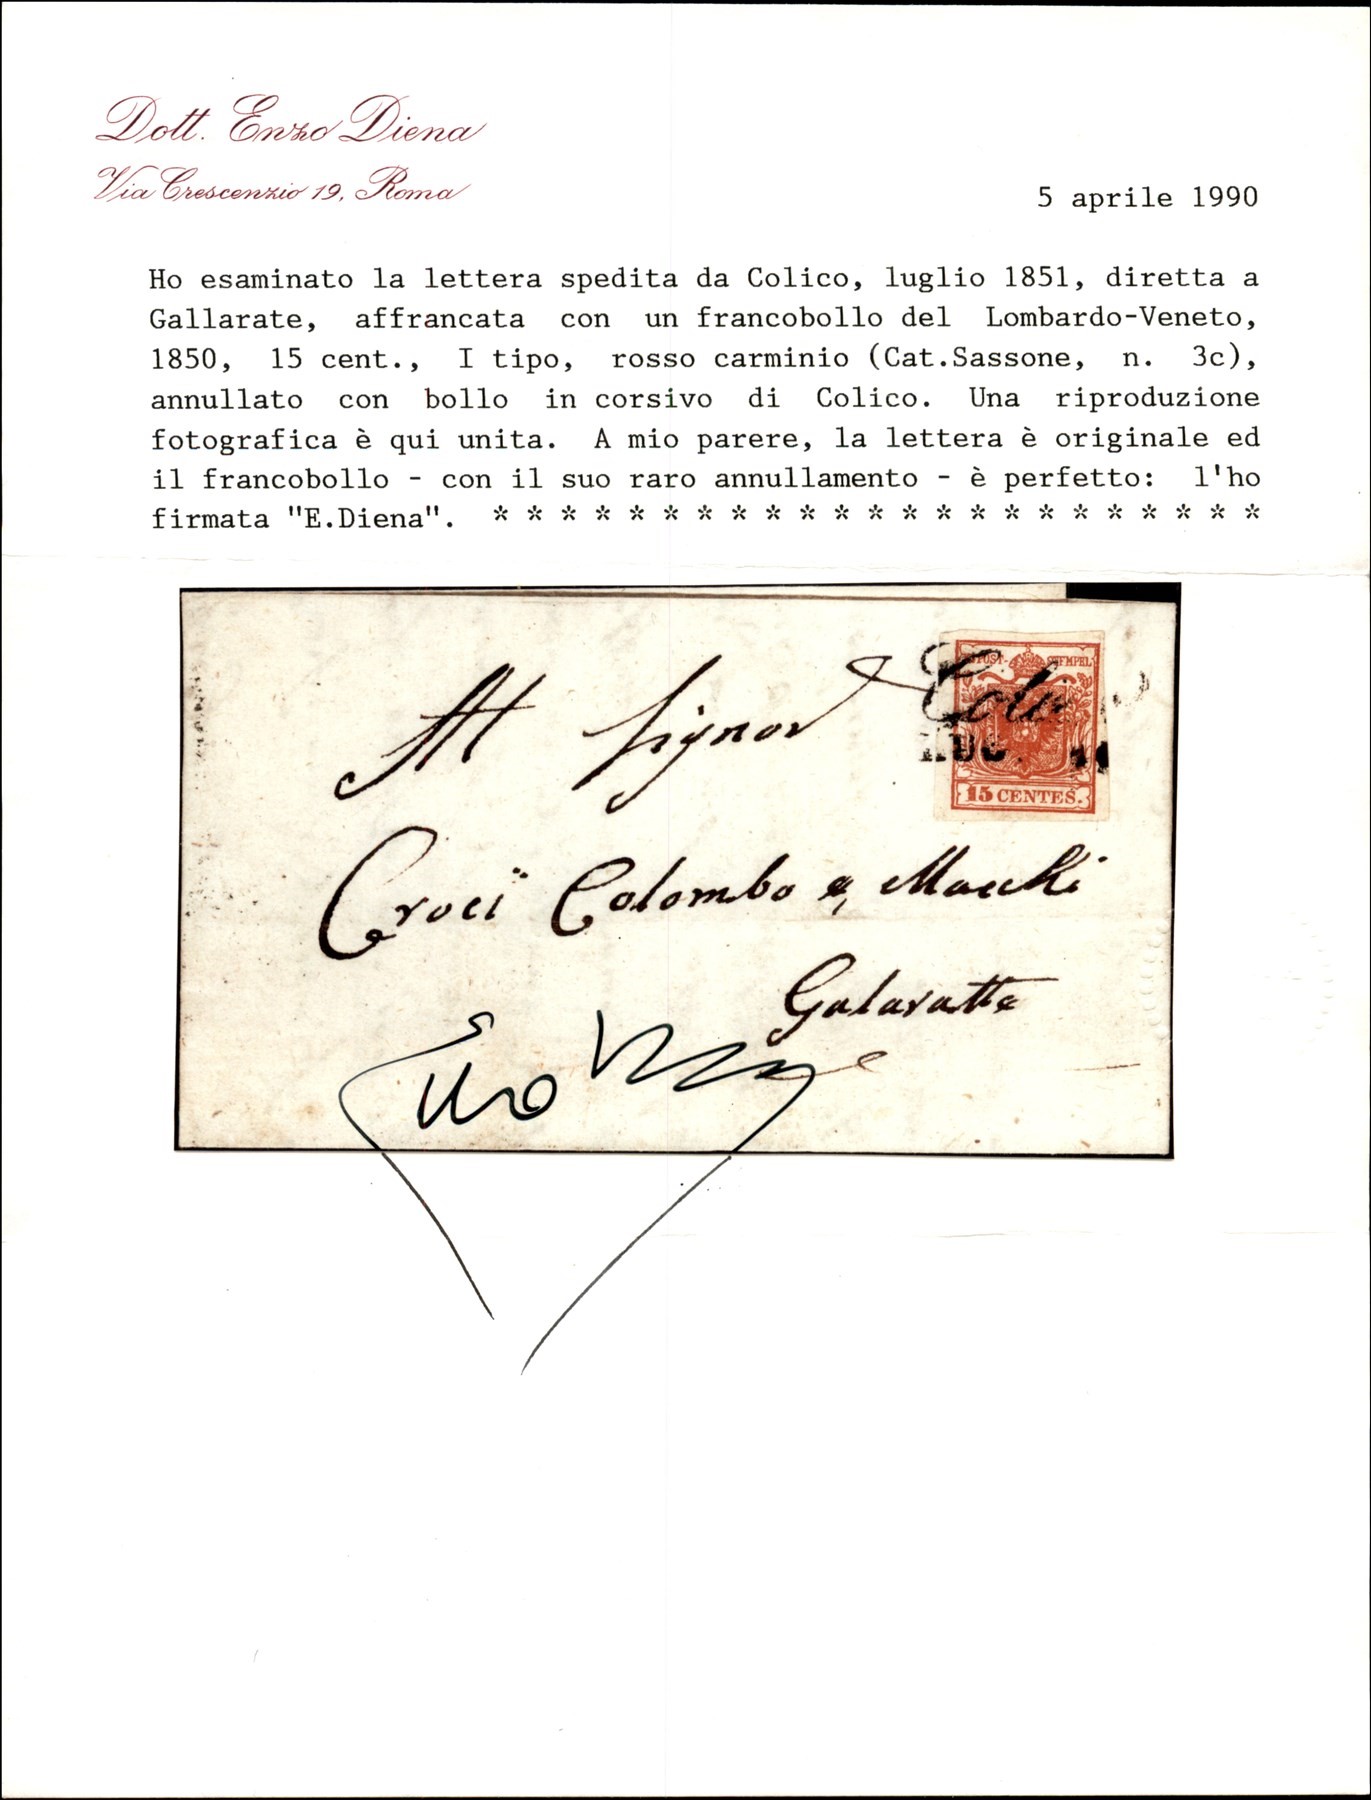 Dott. Enzo Diena
Via Crescenzio 19, Roma
5 aprile 1990
Ho esaminato la lettera spedita da Colico, luglio 1851, diretta a
Gallarate, affrancata con un francobollo del Lombardo-Veneto,
1850, 15 cent., I tipo, rosso carminio (Cat.Sassone, n. 3c),
annullato con bollo in corsivo di Colico. Una riproduzione
fotografica è qui unita. A mio parere, la lettera è originale ed
il francobollo - con il suo raro annullamento - è perfetto: l'ho
firmata "E.Diena". * * * * * * * * * * * * * * * * * * * * * * *
KKPOST-STEMPEL
Coli
15 CENTES.
Al Signor
Croci Colombo e Macchi
Galaratte